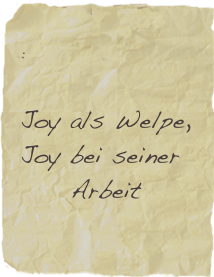 Joy als Welpe,
Joy bei seiner
Arbeit